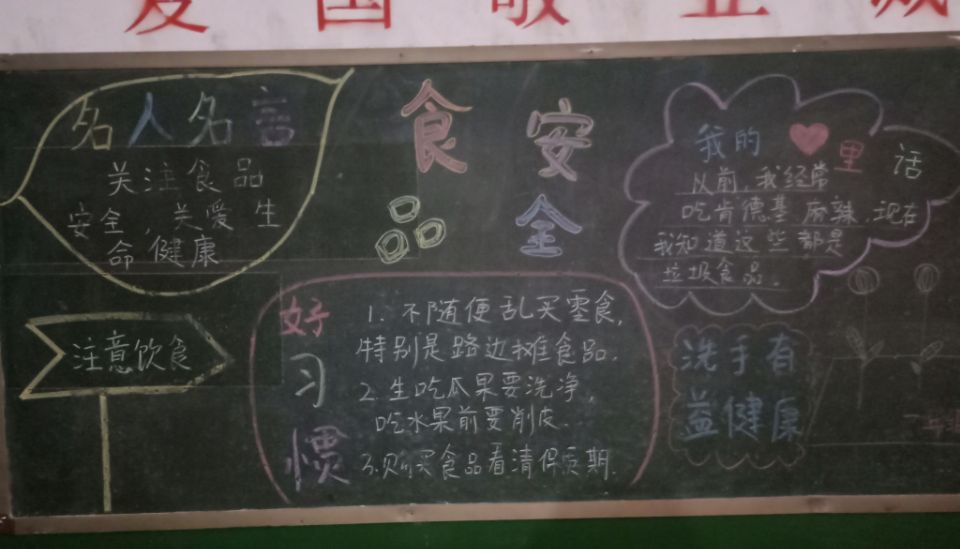 爱国敬业诚
食品安全
名人名言
关注食品
安全，关爱生
命，健康
注意饮食
好习惯
1、不随便乱买零食，
特别是路边摊食品.
2.生吃瓜果要洗净，
吃水果前要削皮.
3.购买食品看清保质期.
我的❤里话
以前，我经常
吃肯德基、麻辣.现在
我知道这些都是
垃圾食品。
洗手有
益健康